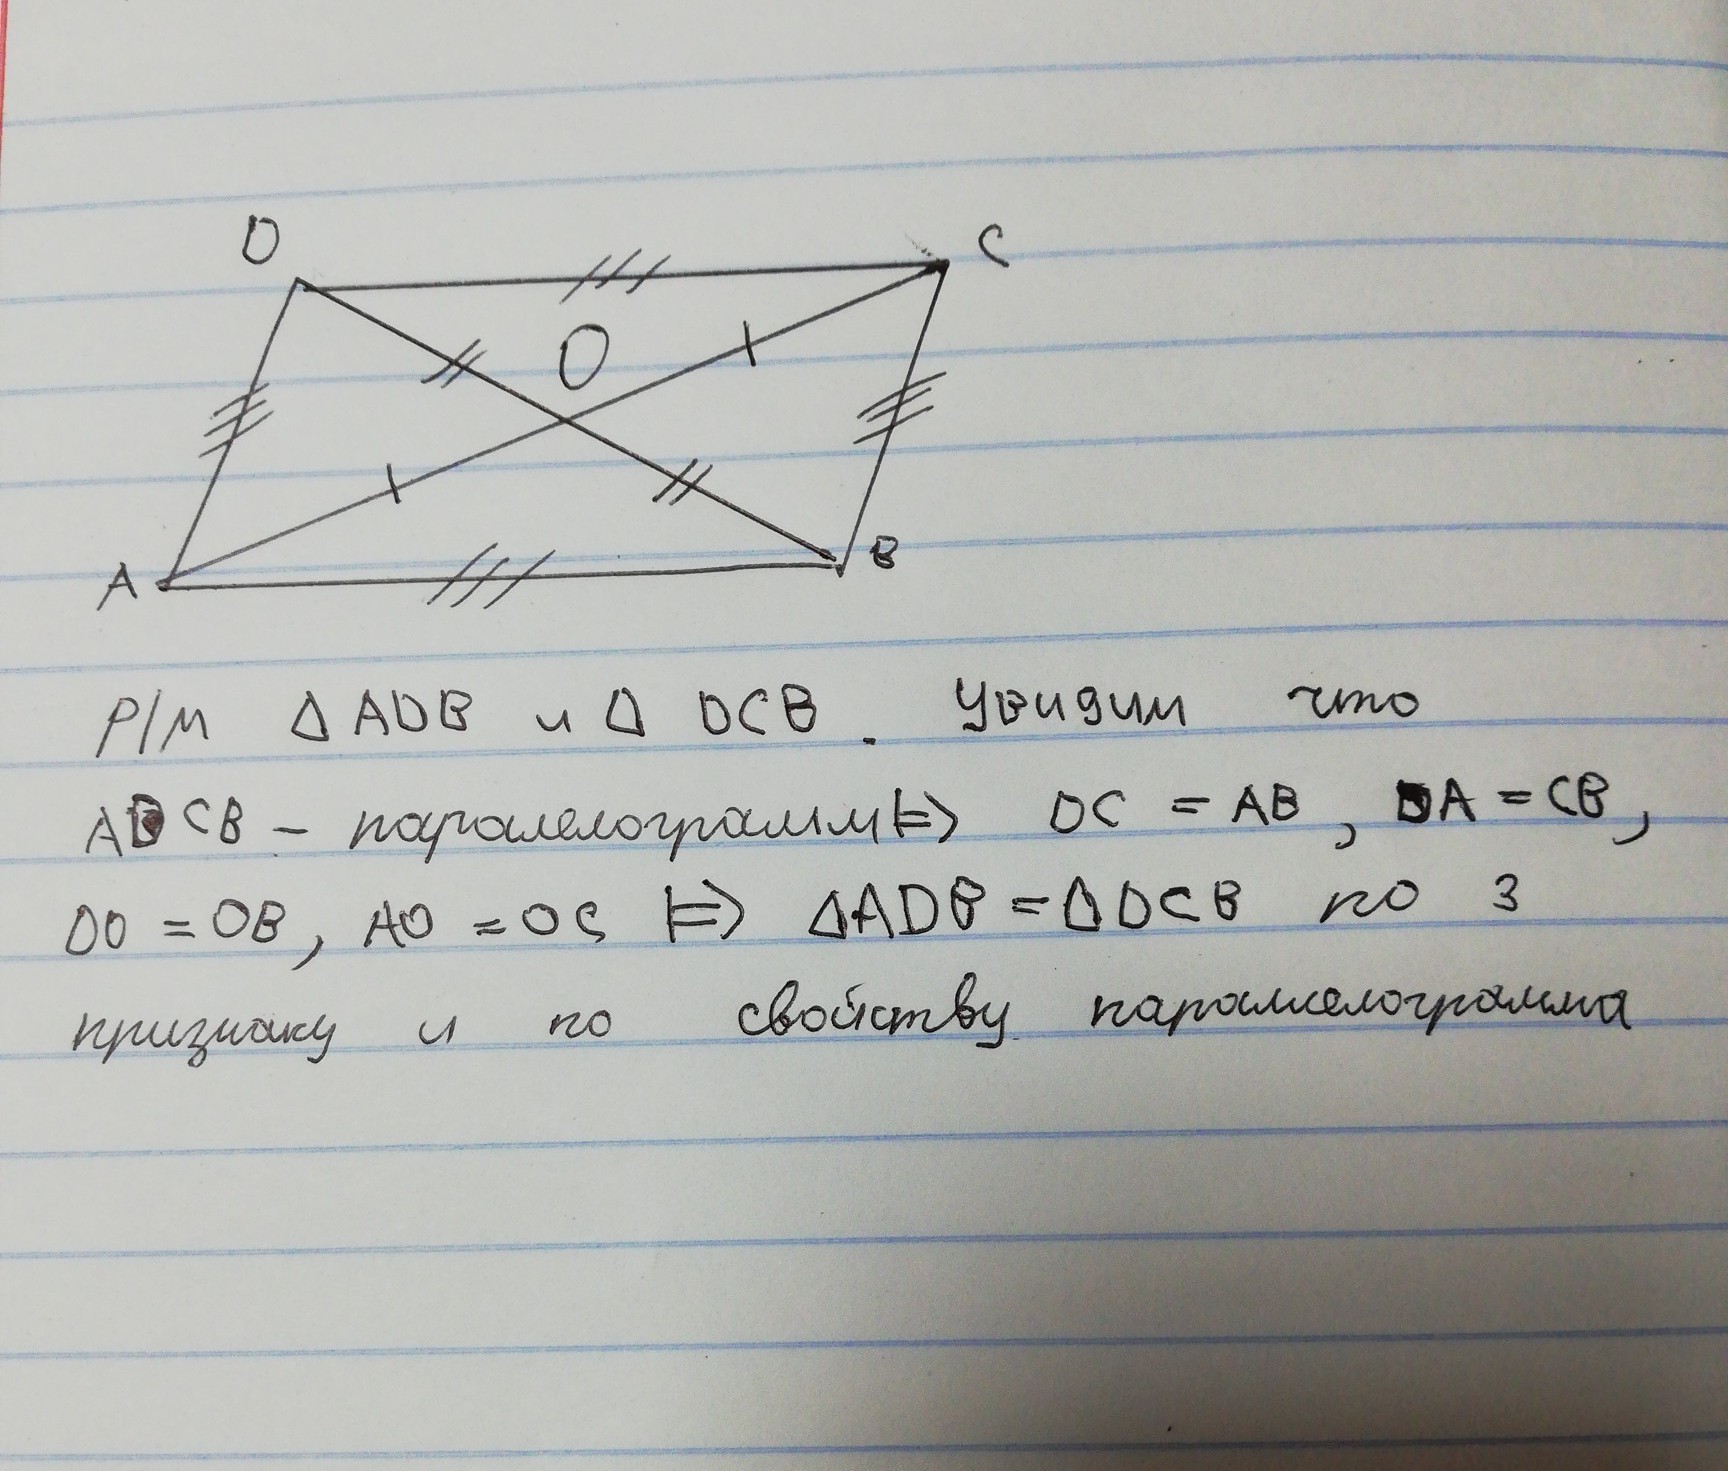 D C
O
A B
Р/М Δ ADB и Δ DCB. Увидим что
ADCB - паралелограмм |=> DC = AB, DA = CB,
DO = OB, AO = OC |=> ΔADB = ΔDCB по 3
признаку и по свойству паралелограмма